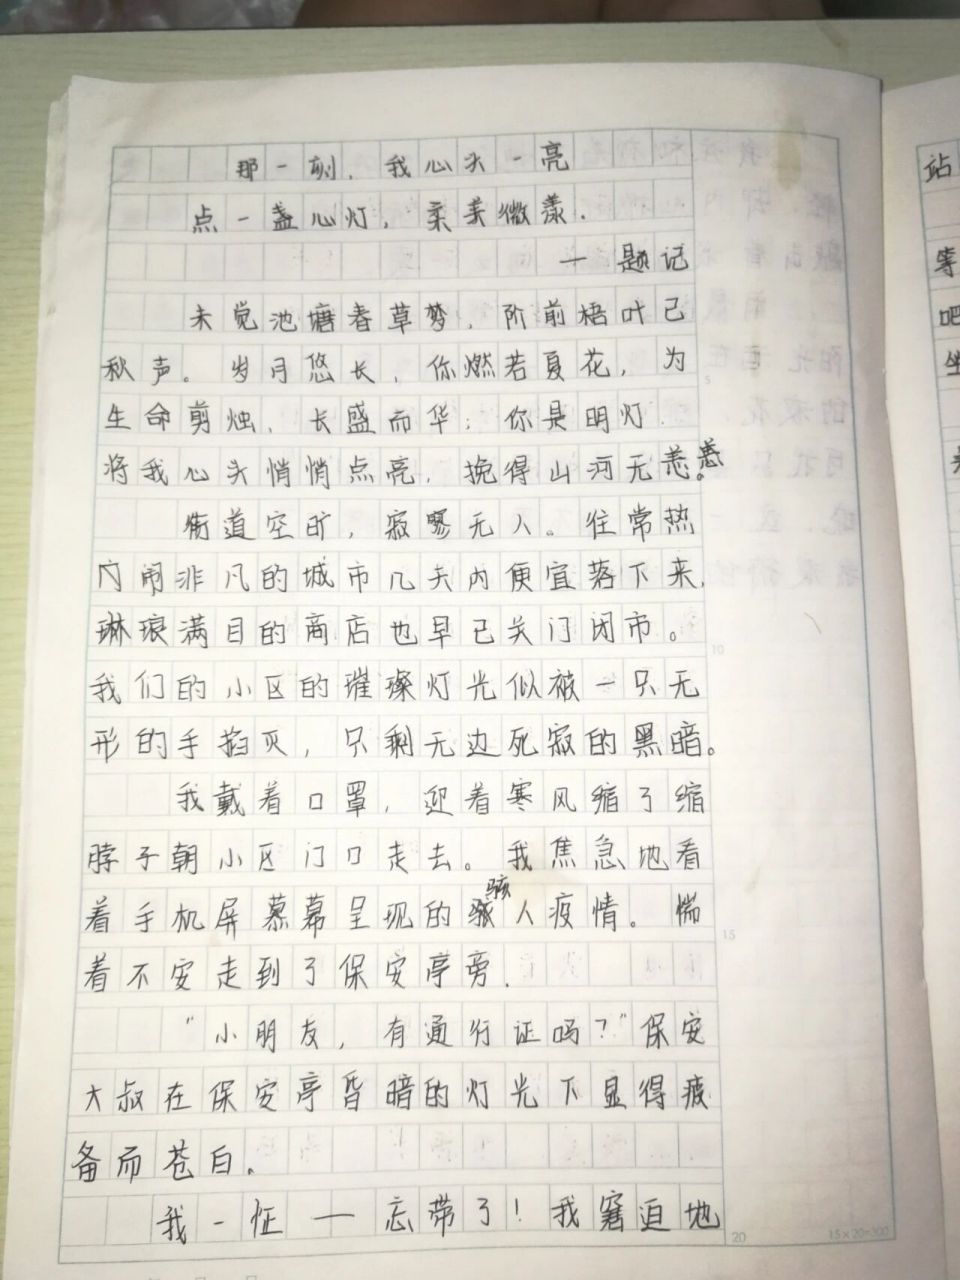 那一刻，我心头一亮
点一盏心灯，柔美微漾.
—题记
未觉池塘春草梦，阶前梧叶已
秋声。岁月悠长，你燃若夏花，为
生命剪烛，长盛而华；你是明灯.
将我心头悄悄点亮，挽得山河无恙。
街道空旷，寂寥无人。往常热
门闹非凡的城市几天内便宜落下来，
琳琅满目的商店也早已关门闭市。
我们的小区的璀璨灯光似被一只无
形的手掐灭，只剩无边死寂的黑暗。
我戴着口罩，迎着寒风缩了缩
脖子朝小区门口走去。我焦急地看
着手机屏幕幕呈现的骇人疫情。惴
着不安走到了保安亭旁.
"小朋友，有通行证吗？"保安
大叔在保安亭昏暗的灯光下显得疲
备而苍白。
我一怔——忘带了！我窘迫地
站
等
吧
坐
20
15×20=300
5
10
15